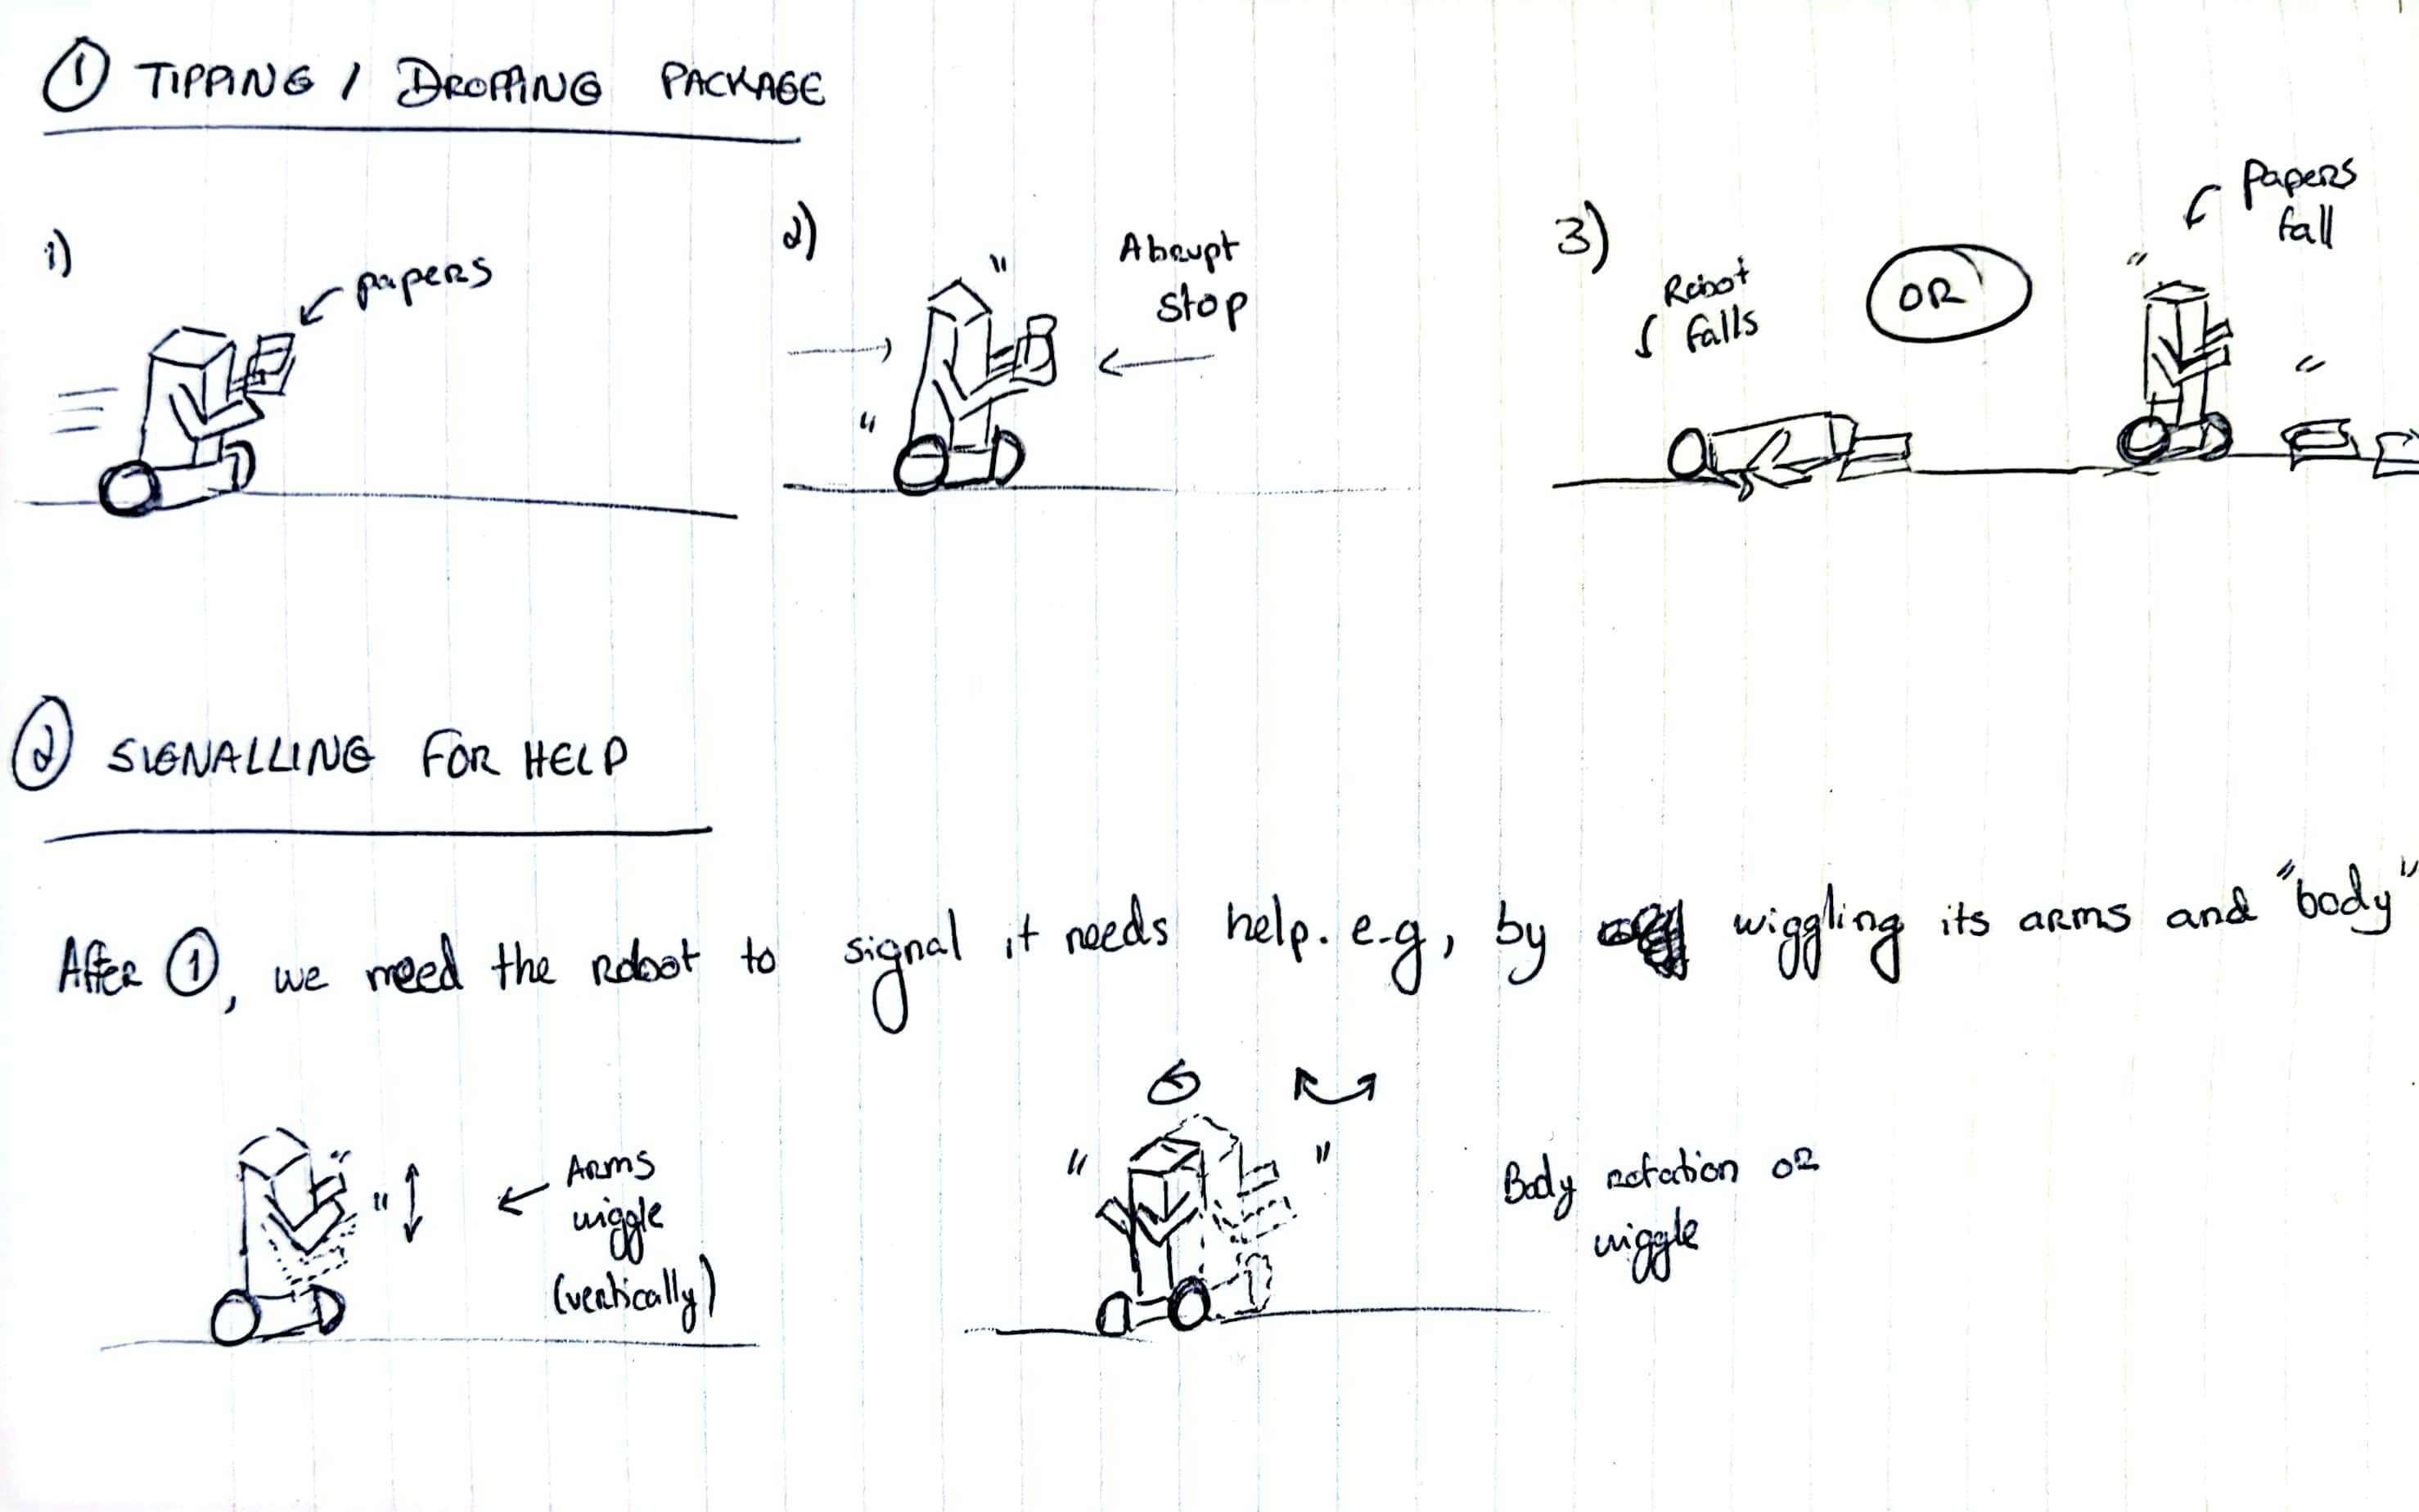 ① TIPPING / DROPPING PACKAGE
1)
papers
2)
Abrupt
stop
3)
Robot
falls
OR
Papers
fall
② SIGNALLING FOR HELP
After ①, we need the robot to signal it needs help. e.g, by wiggling its arms and "body"
Arms
wiggle
(vertically)
Body rotation or
wiggle